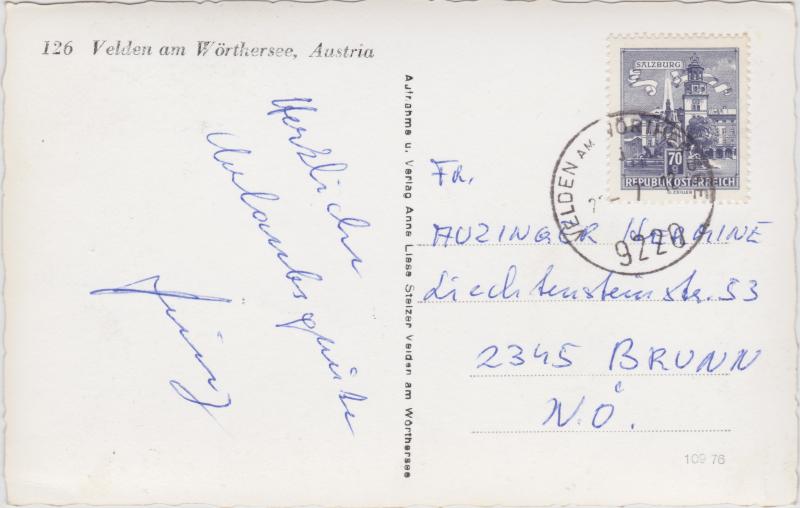 126 Velden am Wörthersee, Austria
Herzliche
Urlaubsgrüße
Aufnahme u. Verlag Anne Liese Stelzer Velden am Wörthersee
SALZBURG
70 g
REPUBLIK ÖSTERREICH
VELDEN AM WÖRTHERSEE
9220
FR.
AUZINGER HERMINE
Liechtensteinstr. 53
2345 BRUNN
N.Ö.
109 76